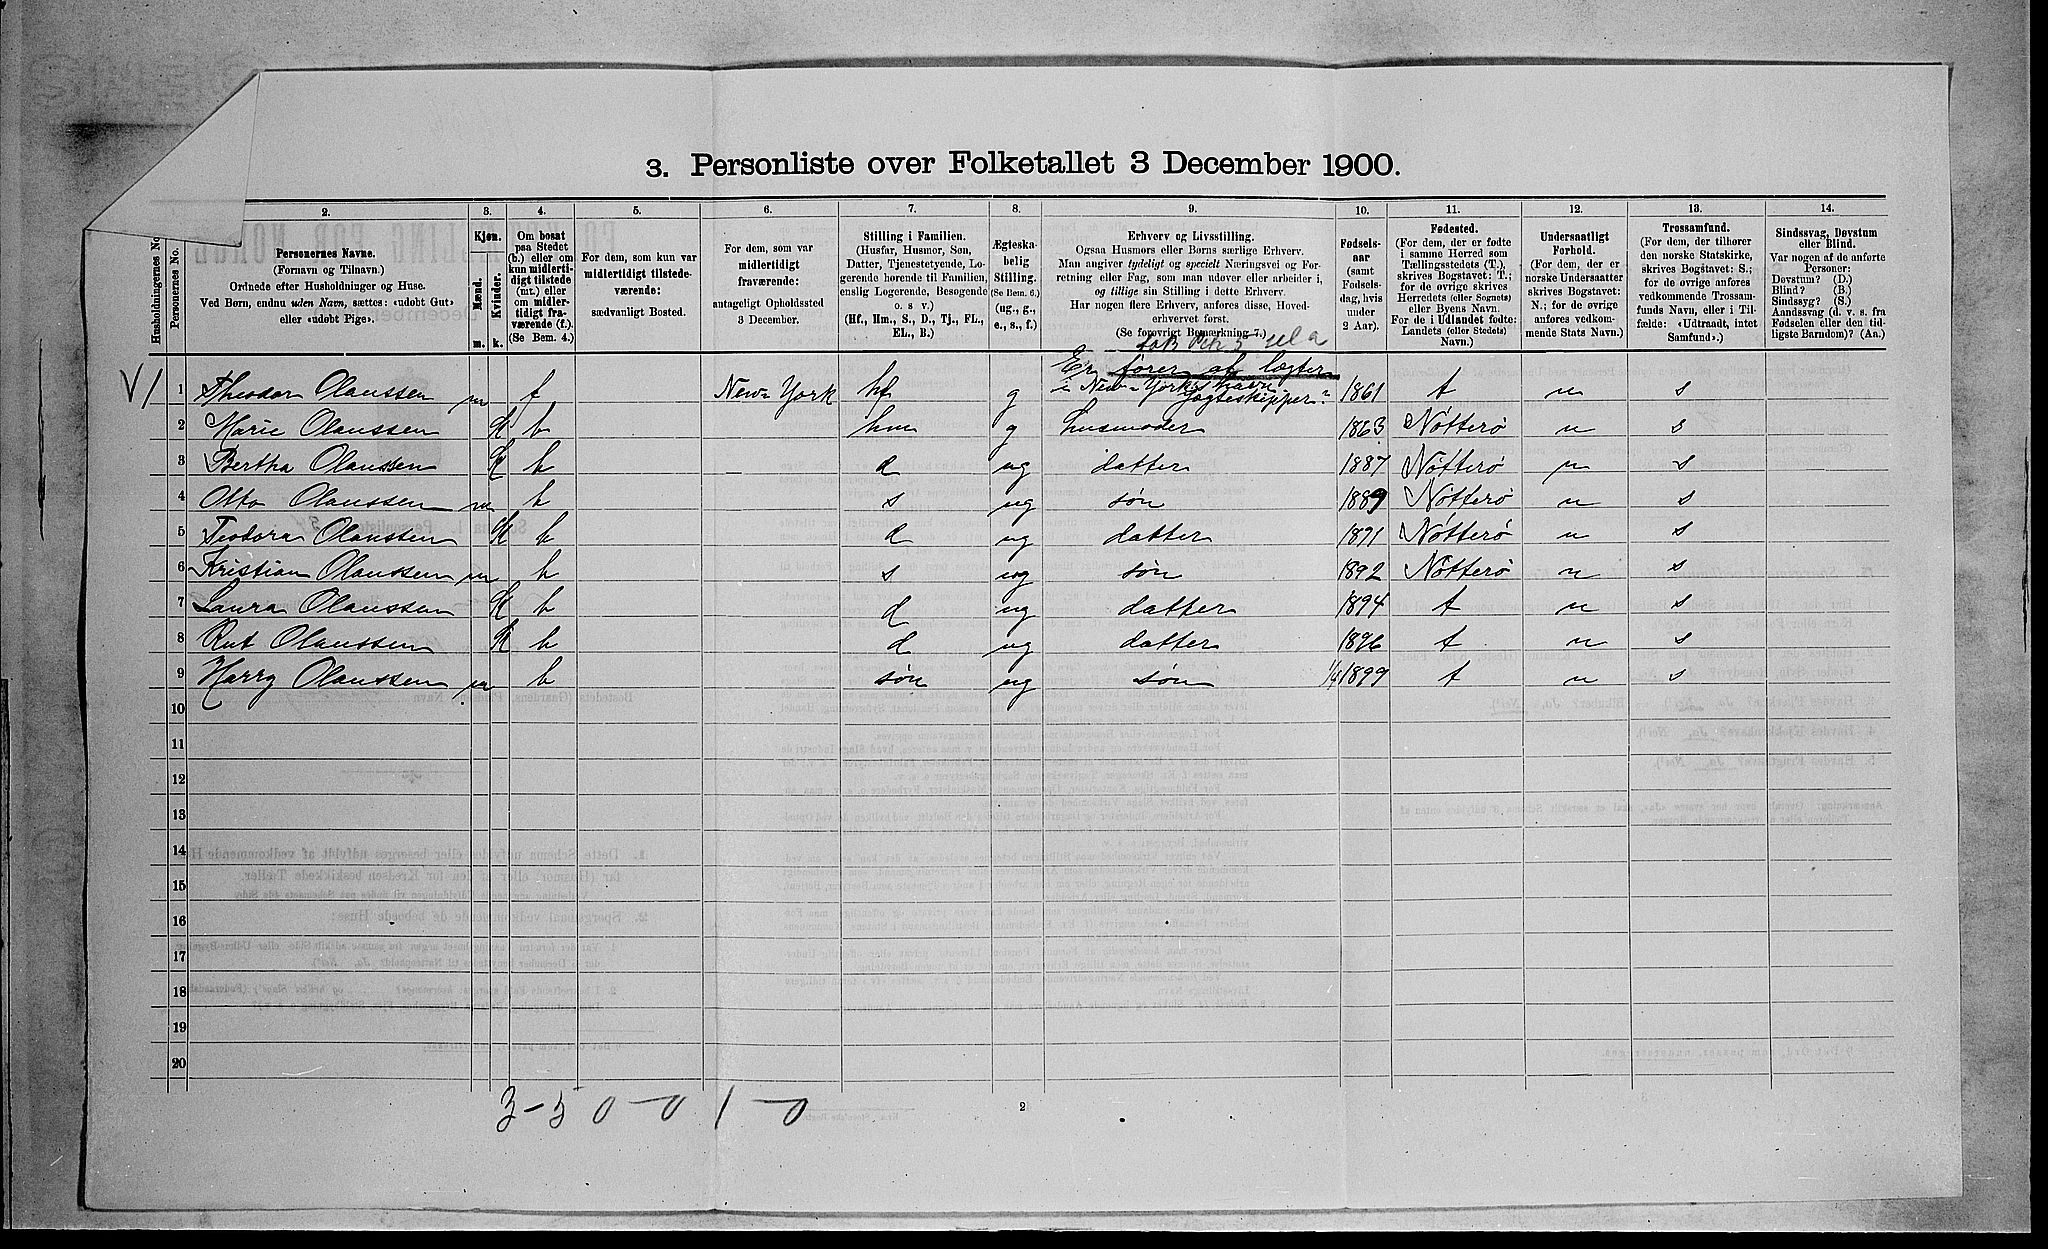 3. Personliste over Folketallet 3 December 1900.
1. 2. 3. 4. 5. 6. 7. 8. 9. 10. 11. 12. 13. 14.
Husholdningernes No.
Personernes No.
Personernes Navne.
(Fornavn og Tilnavn.)
Ordnede efter Husholdninger og Huse.
Ved Børn, endnu uden Navn, sættes: «udøbt Gut»
eller «udøbt Pige».
Kjøn.
Mænd. Kvinder.
m. k.
Om bosat
paa Stedet
(b.) eller om
kun midlerti-
digt tilstede
(mt.) eller
om midler-
tidigt fra-
værende (f.).
(Se Bem. 4.)
For dem, som kun var
midlertidigt tilstede-
værende:
sædvanligt Bosted.
For dem, som var
midlertidigt
fraværende:
antageligt Opholdssted
3 December.
Stilling i Familien.
(Husfar, Husmor, Søn,
Datter, Tjenestetyende, Lo-
gerende hørende til Familien,
enslig Logerende, Besøgende
o. s v.)
(Hf., Hm., S., D., Tj., FL.,
EL., B.)
Ægteska-
belig
Stilling.
(Se Bem. 6.)
(ug., g.,
e., s., f.)
Erhverv og Livsstilling.
Ogsaa Husmors eller Børns særlige Erhverv.
Man angiver tydeligt og specielt Næringsvei og For-
retning eller Fag, som man udøver eller arbeider i,
og tillige sin Stilling i dette Erhverv.
Har nogen flere Erhverv, anføres disse, Hoved-
erhvervet først.
(Se forøvrigt Bemærkning 7.)
Fødsels-
aar
(samt
Fødsels-
dag, hvis
under
2 Aar).
Fødested.
(For dem, der er fødte
i samme Herred som
Tællingsstedets (T.),
skrives Bogstavet: T.;
for de øvrige skrives
Herredets (eller Sognets)
eller Byens Navn.
For de i Udlandet fødte:
Landets (eller Stedets)
Navn.)
Undersaatligt
Forhold.
(For dem, der er
norske Undersaatter
skrives Bogstavet:
N.; for de øvrige
anføres vedkom-
mende Stats Navn.)
Trossamfund.
(For dem, der tilhører
den norske Statskirke,
skrives Bogstavet: S.;
for de øvrige anføres
vedkommende Trossam-
funds Navn, eller i Til-
fælde: «Udtraadt, intet
Samfund».)
Sindssvag, Døvstum
eller Blind.
Var nogen af de anførte
Personer:
Døvstum? (D.)
Blind? (B.)
Sindssyg? (S.)
Aandssvag (d. v. s. fra
Fødselen eller den tid-
ligste Barndom)? (Aa.)
V/ 1 Theodor Olaussen m f New-York hf g Er fører af lægter i New-Yorks havn Jagteskipper? 1861 t n s
2 Marie Olaussen K b hm g husmoder 1863 Nötterö n s
3 Bertha Olaussen K b d ug datter 1887 Nötterö n s
4 Otto Olaussen m b s ug søn 1889 Nötterö n s
5 Teodora Olaussen K b d ug datter 1891 Nötterö n s
6 Kristian Olaussen m b s ug søn 1892 Nötterö n s
7 Laura Olaussen K b d ug datter 1894 t n s
8 Rut Olaussen K b d ug datter 1896 t n s
9 Harry Olaussen m b søn ug søn 1/4 1899 t n s
10
11
12
13
14
15
16
17
18
19
20
3-5 0-0 1-0
2